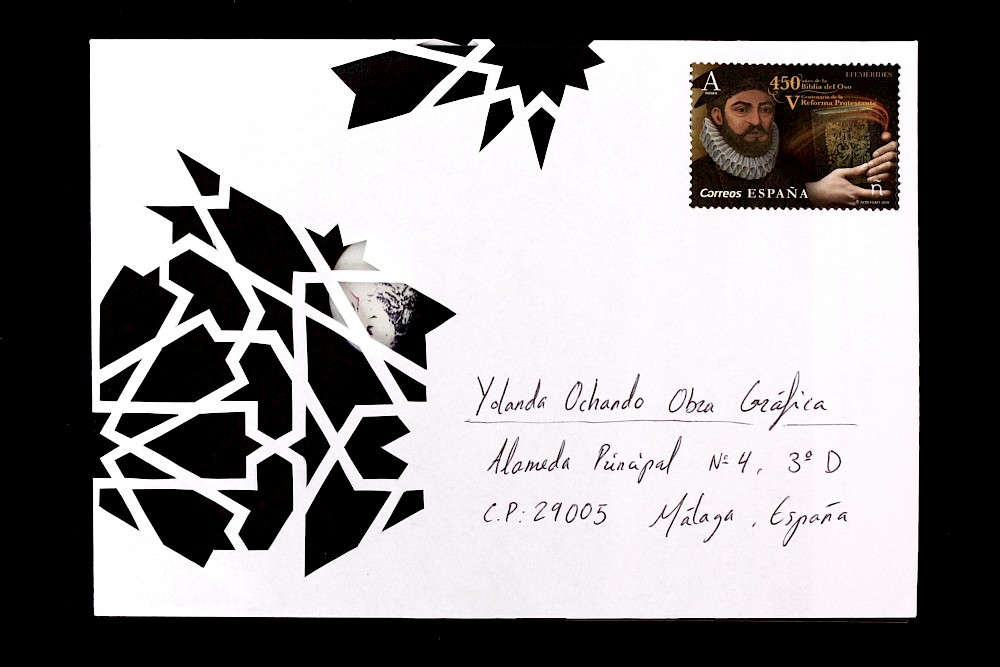 EFEMERIDES
A
450 años de la
Biblia del Oso
V Centenario de la
Reforma Protestante
Correos ESPAÑA
ñ
Yolanda Ochando Obra Gráfica
Alameda Principal Nº 4, 3º D
C.P: 29005 Málaga, España